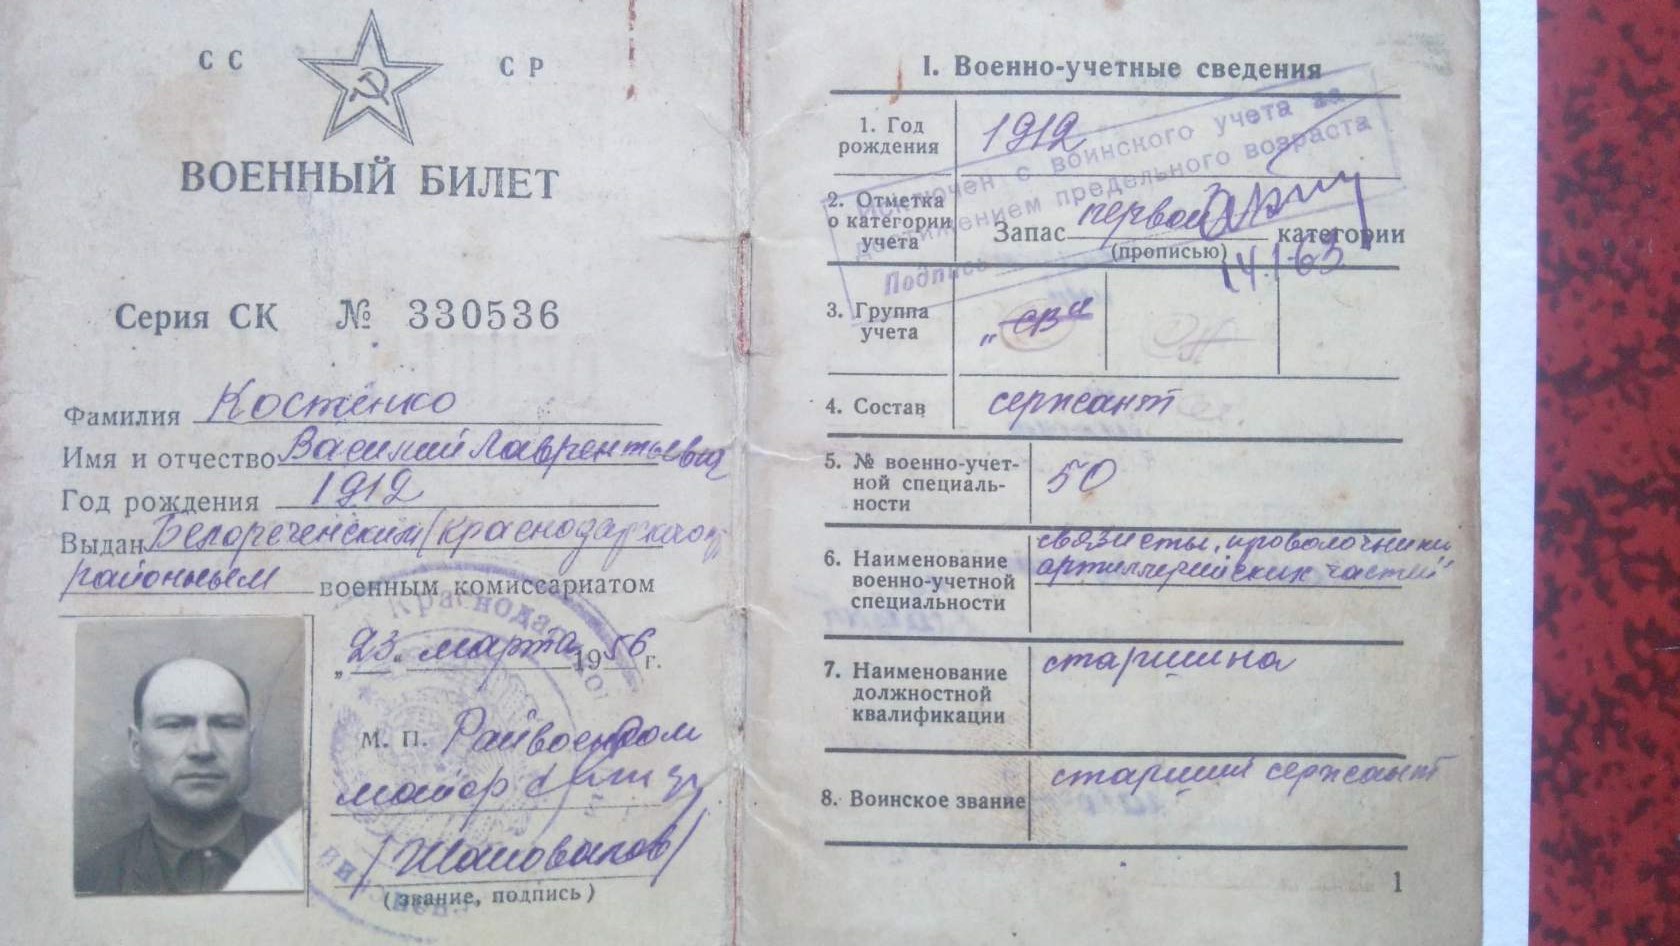 СС СР
ВОЕННЫЙ БИЛЕТ
Серия СК № 330536
Фамилия Костенко
Имя и отчество Василий Лаврентьевич
Год рождения 1912
Выдан Белореченским (Краснодарского)
районным военным комиссариатом
„23" марта 1956 г.
М. П. Райвоенком
майор
/Шаповалов/
(звание, подпись)
I. Военно-учетные сведения
1. Год
рождения
1912
2. Отметка
о категории
учета
Запас первой категории
(прописью)
Исключен с воинского учета за
достижением предельного возраста
Подпись
14.1-63
3. Группа
учета
„СВ"
4. Состав
сержант
5. № военно-учет-
ной специаль-
ности
50
6. Наименование
военно-учетной
специальности
связисты, проволочники
артиллерийских частей
7. Наименование
должностной
квалификации
старшина
8. Воинское звание
старший сержант
1